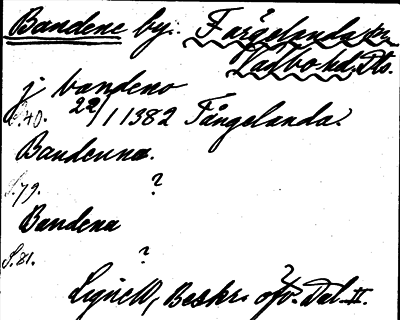 Bandene by. Färgelanda sn
Valbo hd. Ds.
j bandeno
S.40. 22/1 1382 Fångelanda.
Bandenna.
S.79. ?
Bandena
S.81. ?
Lignell, Beskr. öfv. Dal II.